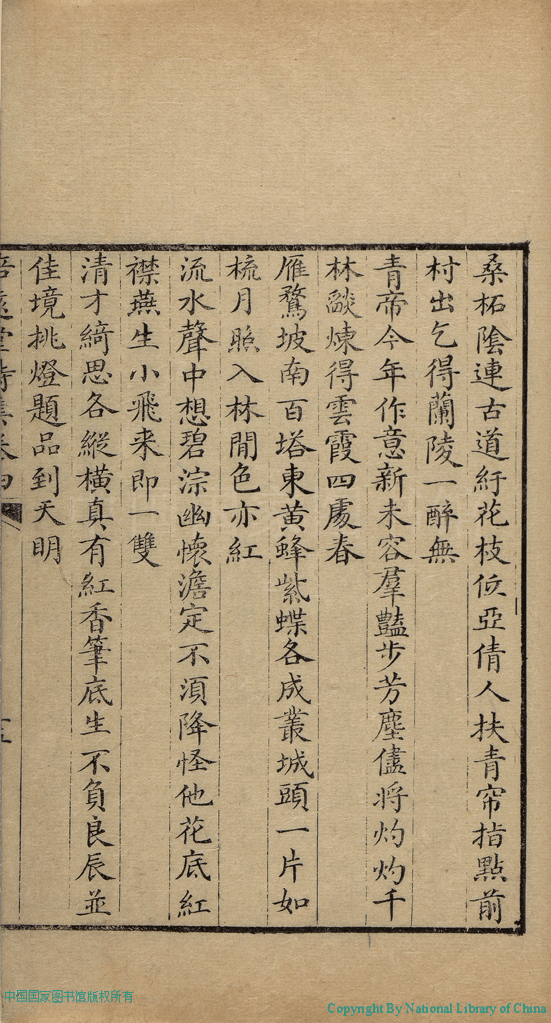 桑柘陰連古道紆花枝低亞倩人扶青帘指點前
村出乞得蘭陵一醉無
青帝今年作意新未容羣豔步芳塵儘將灼灼千
林燄煉得雲霞四處春
雁鶩坡南百塔東黃蜂紫蝶各成叢城頭一片如
梳月照入林間色亦紅
流水聲中想碧淙幽懷澹定不須降怪他花底紅
襟燕生小飛来即一雙
清才綺思各縱橫真有紅香筆底生不負良辰並
佳境挑燈題品到天明
中国国家图书馆版权所有
Copyright By National Library of China